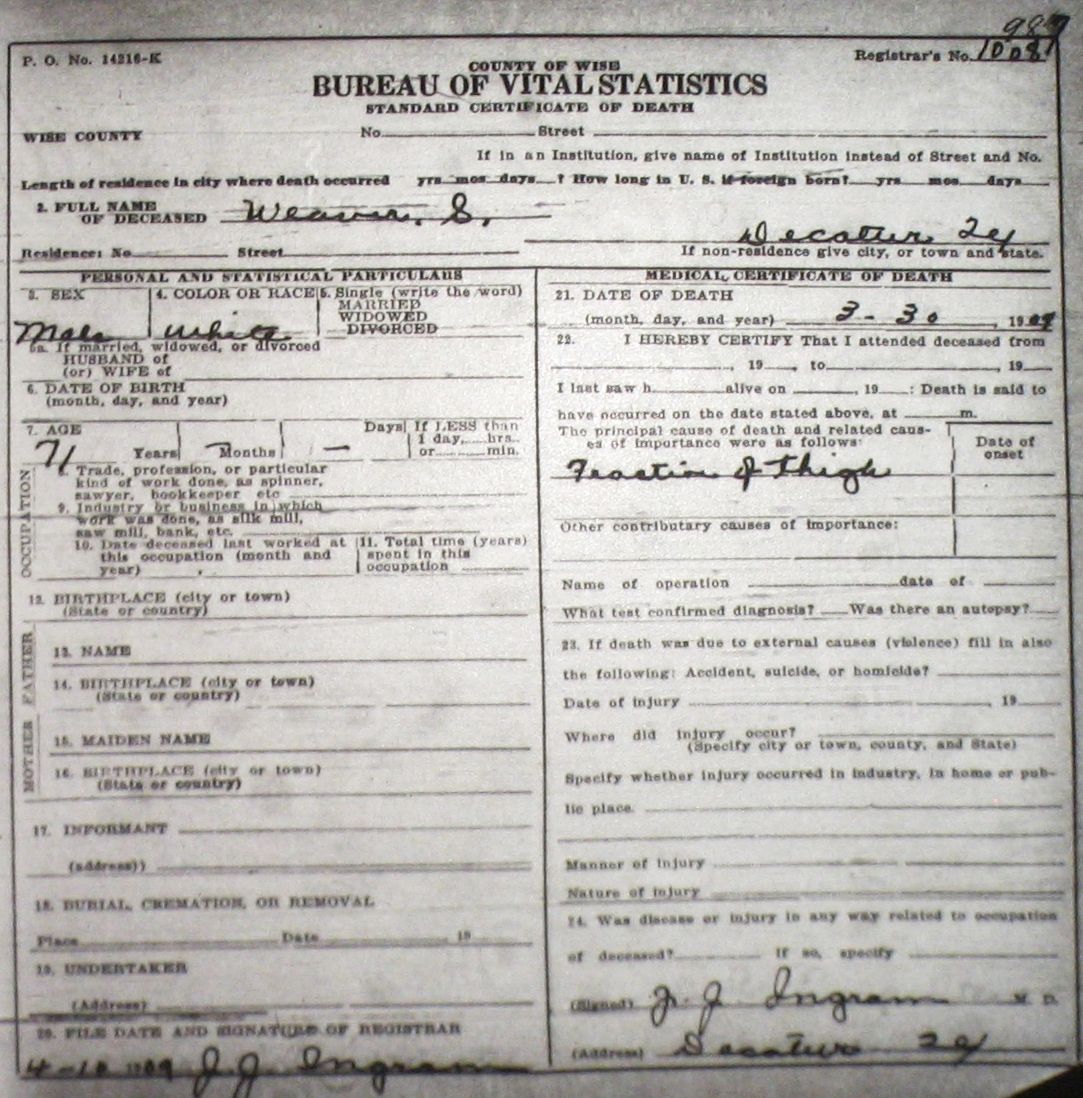 989
P. O. No. 14216-K
Registrar's No. 1008
COUNTY OF WISE
BUREAU OF VITAL STATISTICS
STANDARD CERTIFICATE OF DEATH
WISE COUNTY No. Street
If in an Institution, give name of Institution instead of Street and No.
Length of residence in city where death occurred yrs mos days ? How long in U. S. if foreign born? yrs mos days
2. FULL NAME
OF DECEASED Weaver, S.
Decatur
Residence: No Street If non-residence give city, or town and state.
PERSONAL AND STATISTICAL PARTICULARS
3. SEX 4. COLOR OR RACE 5. Single (write the word)
MARRIED
WIDOWED
DIVORCED
Male White
6a. If married, widowed, or divorced
HUSBAND of
(or) WIFE of
6. DATE OF BIRTH
(month, day, and year)
7. AGE Days If LESS than
1 day, hrs.
71 Years Months — or min.
OCCUPATION
8. Trade, profession, or particular
kind of work done, as spinner,
sawyer, bookkeeper etc
9. Industry or business in which
work was done, as silk mill,
saw mill, bank, etc.
10. Date deceased last worked at
this occupation (month and
year)
11. Total time (years)
spent in this
occupation
12. BIRTHPLACE (city or town)
(State or country)
FATHER
13. NAME
14. BIRTHPLACE (city or town)
(State or country)
MOTHER
15. MAIDEN NAME
16. BIRTHPLACE (city or town)
(State or country)
17. INFORMANT
(address))
18. BURIAL, CREMATION, OR REMOVAL
Place Date 19
19. UNDERTAKER
(Address)
20. FILE DATE AND SIGNATURE OF REGISTRAR
4-10 1909 J. J. Ingram
MEDICAL CERTIFICATE OF DEATH
21. DATE OF DEATH
(month, day, and year) 3-30, 1909
22. I HEREBY CERTIFY That I attended deceased from
, 19 , to , 19
I last saw h alive on , 19 : Death is said to
have occurred on the date stated above, at m.
The principal cause of death and related caus-
es of importance were as follows:
Date of
onset
Fraction of thigh
Other contributary causes of importance:
Name of operation date of
What test confirmed diagnosis? Was there an autopsy?
23. If death was due to external causes (violence) fill in also
the following: Accident, suicide, or homicide?
Date of injury , 19
Where did injury occur?
(Specify city or town, county, and State)
Specify whether injury occurred in industry, in home or pub-
lic place.
Manner of injury
Nature of injury
24. Was disease or injury in any way related to occupation
of deceased? If so, specify
(Signed) J. J. Ingram M. D.
(Address) Decatur